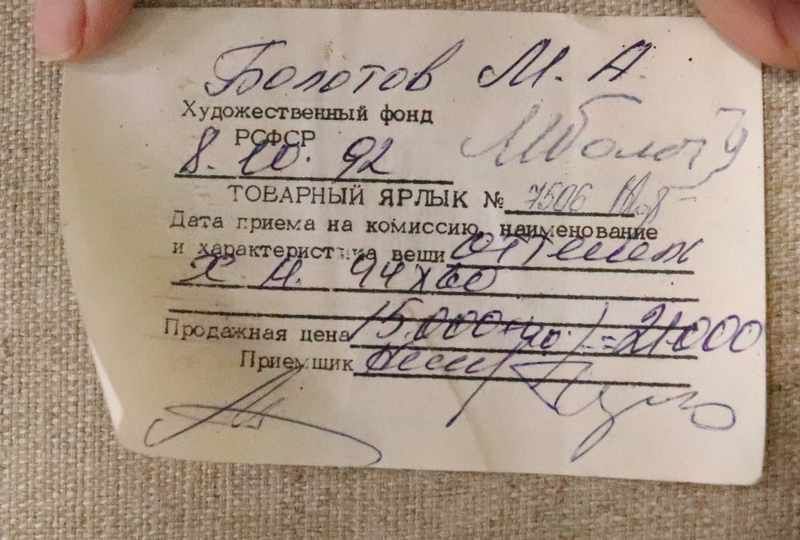 Болотов М. А.
Художественный фонд
РСФСР
8. 10. 92
ТОВАРНЫЙ ЯРЛЫК № 7506
Дата приема на комиссию, наименование
и характеристика вещи
х. 44х60
Продажная цена 15.000 = 21.000
Приемщик